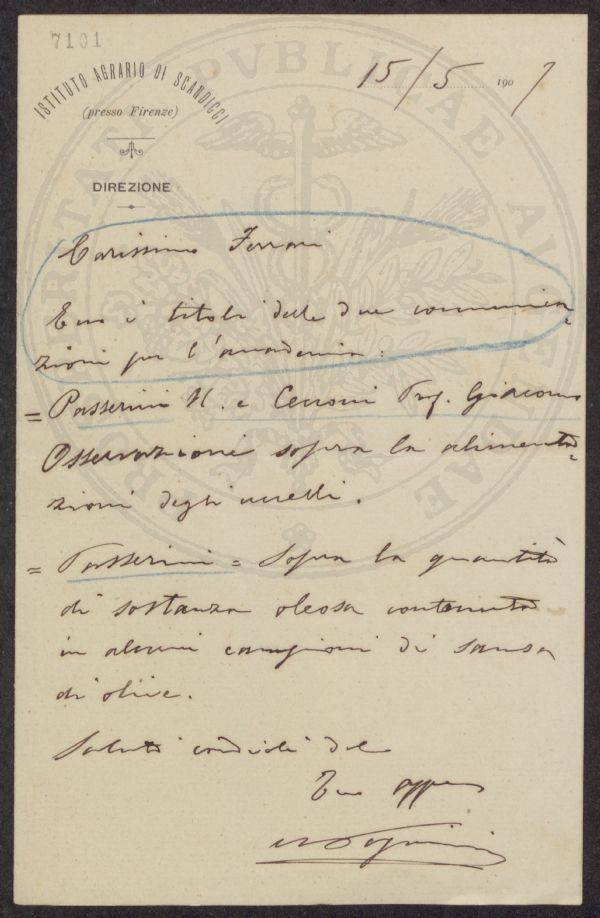 7101
ISTITUTO AGRARIO DI SCANDICCI
(presso Firenze)
DIREZIONE
15/5 1907
Carissimo Ferrari
Ecco i titoli delle due comunica-
zioni per l'accademia:
= Passerini N. e Cecconi Prof. Giacomo
Osservazioni sopra la alimenta-
zioni degli uccelli.
= Passerini = Sopra la quantità
di sostanza oleosa contenuta
in alcuni campioni di sansa
di olive.
Saluti cordiali dal
Tuo aff